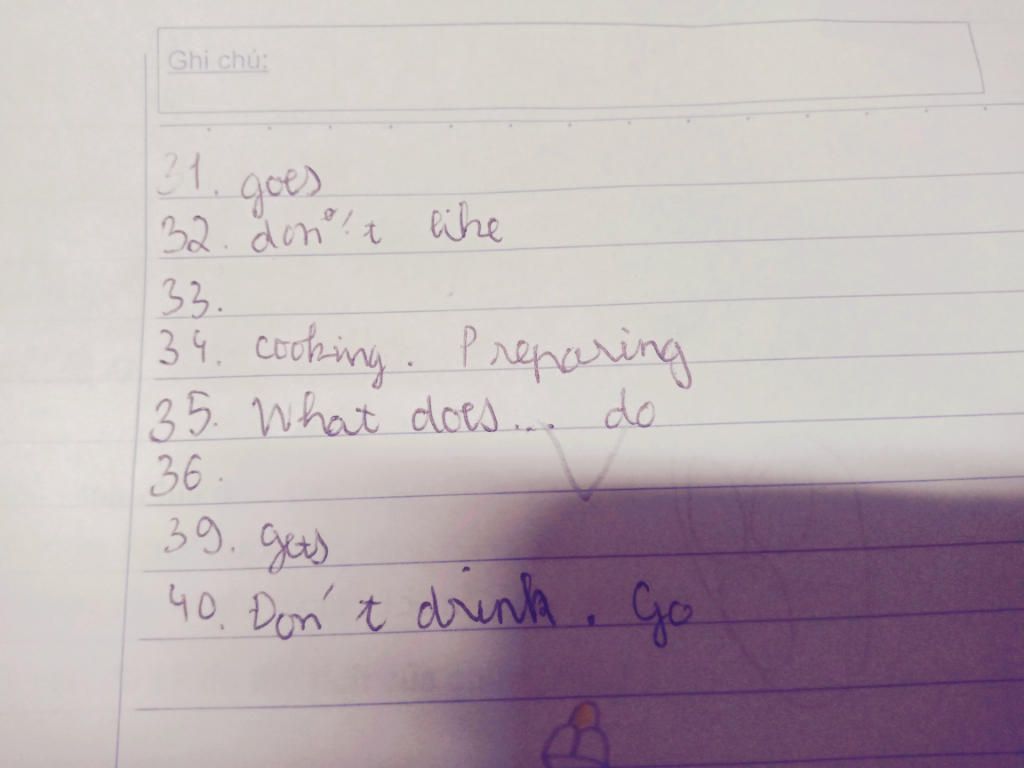 Ghi chú:
31. goes
32. don't like
33.
34. cooking. Preparing
35. What does... do
36.
39. gets
40. Don't drink. Go